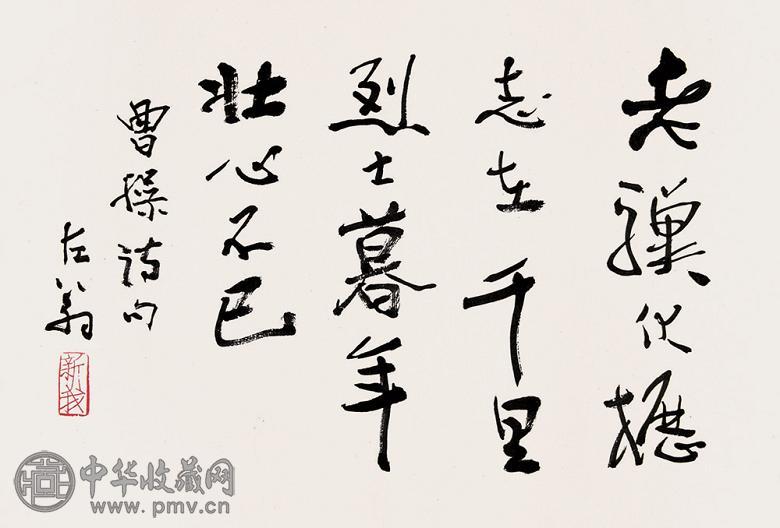 老驥伏櫪
志在千里
烈士暮年
壯心不已
曹操詩句
左翁
新我
中华收藏网
www.pmv.cn